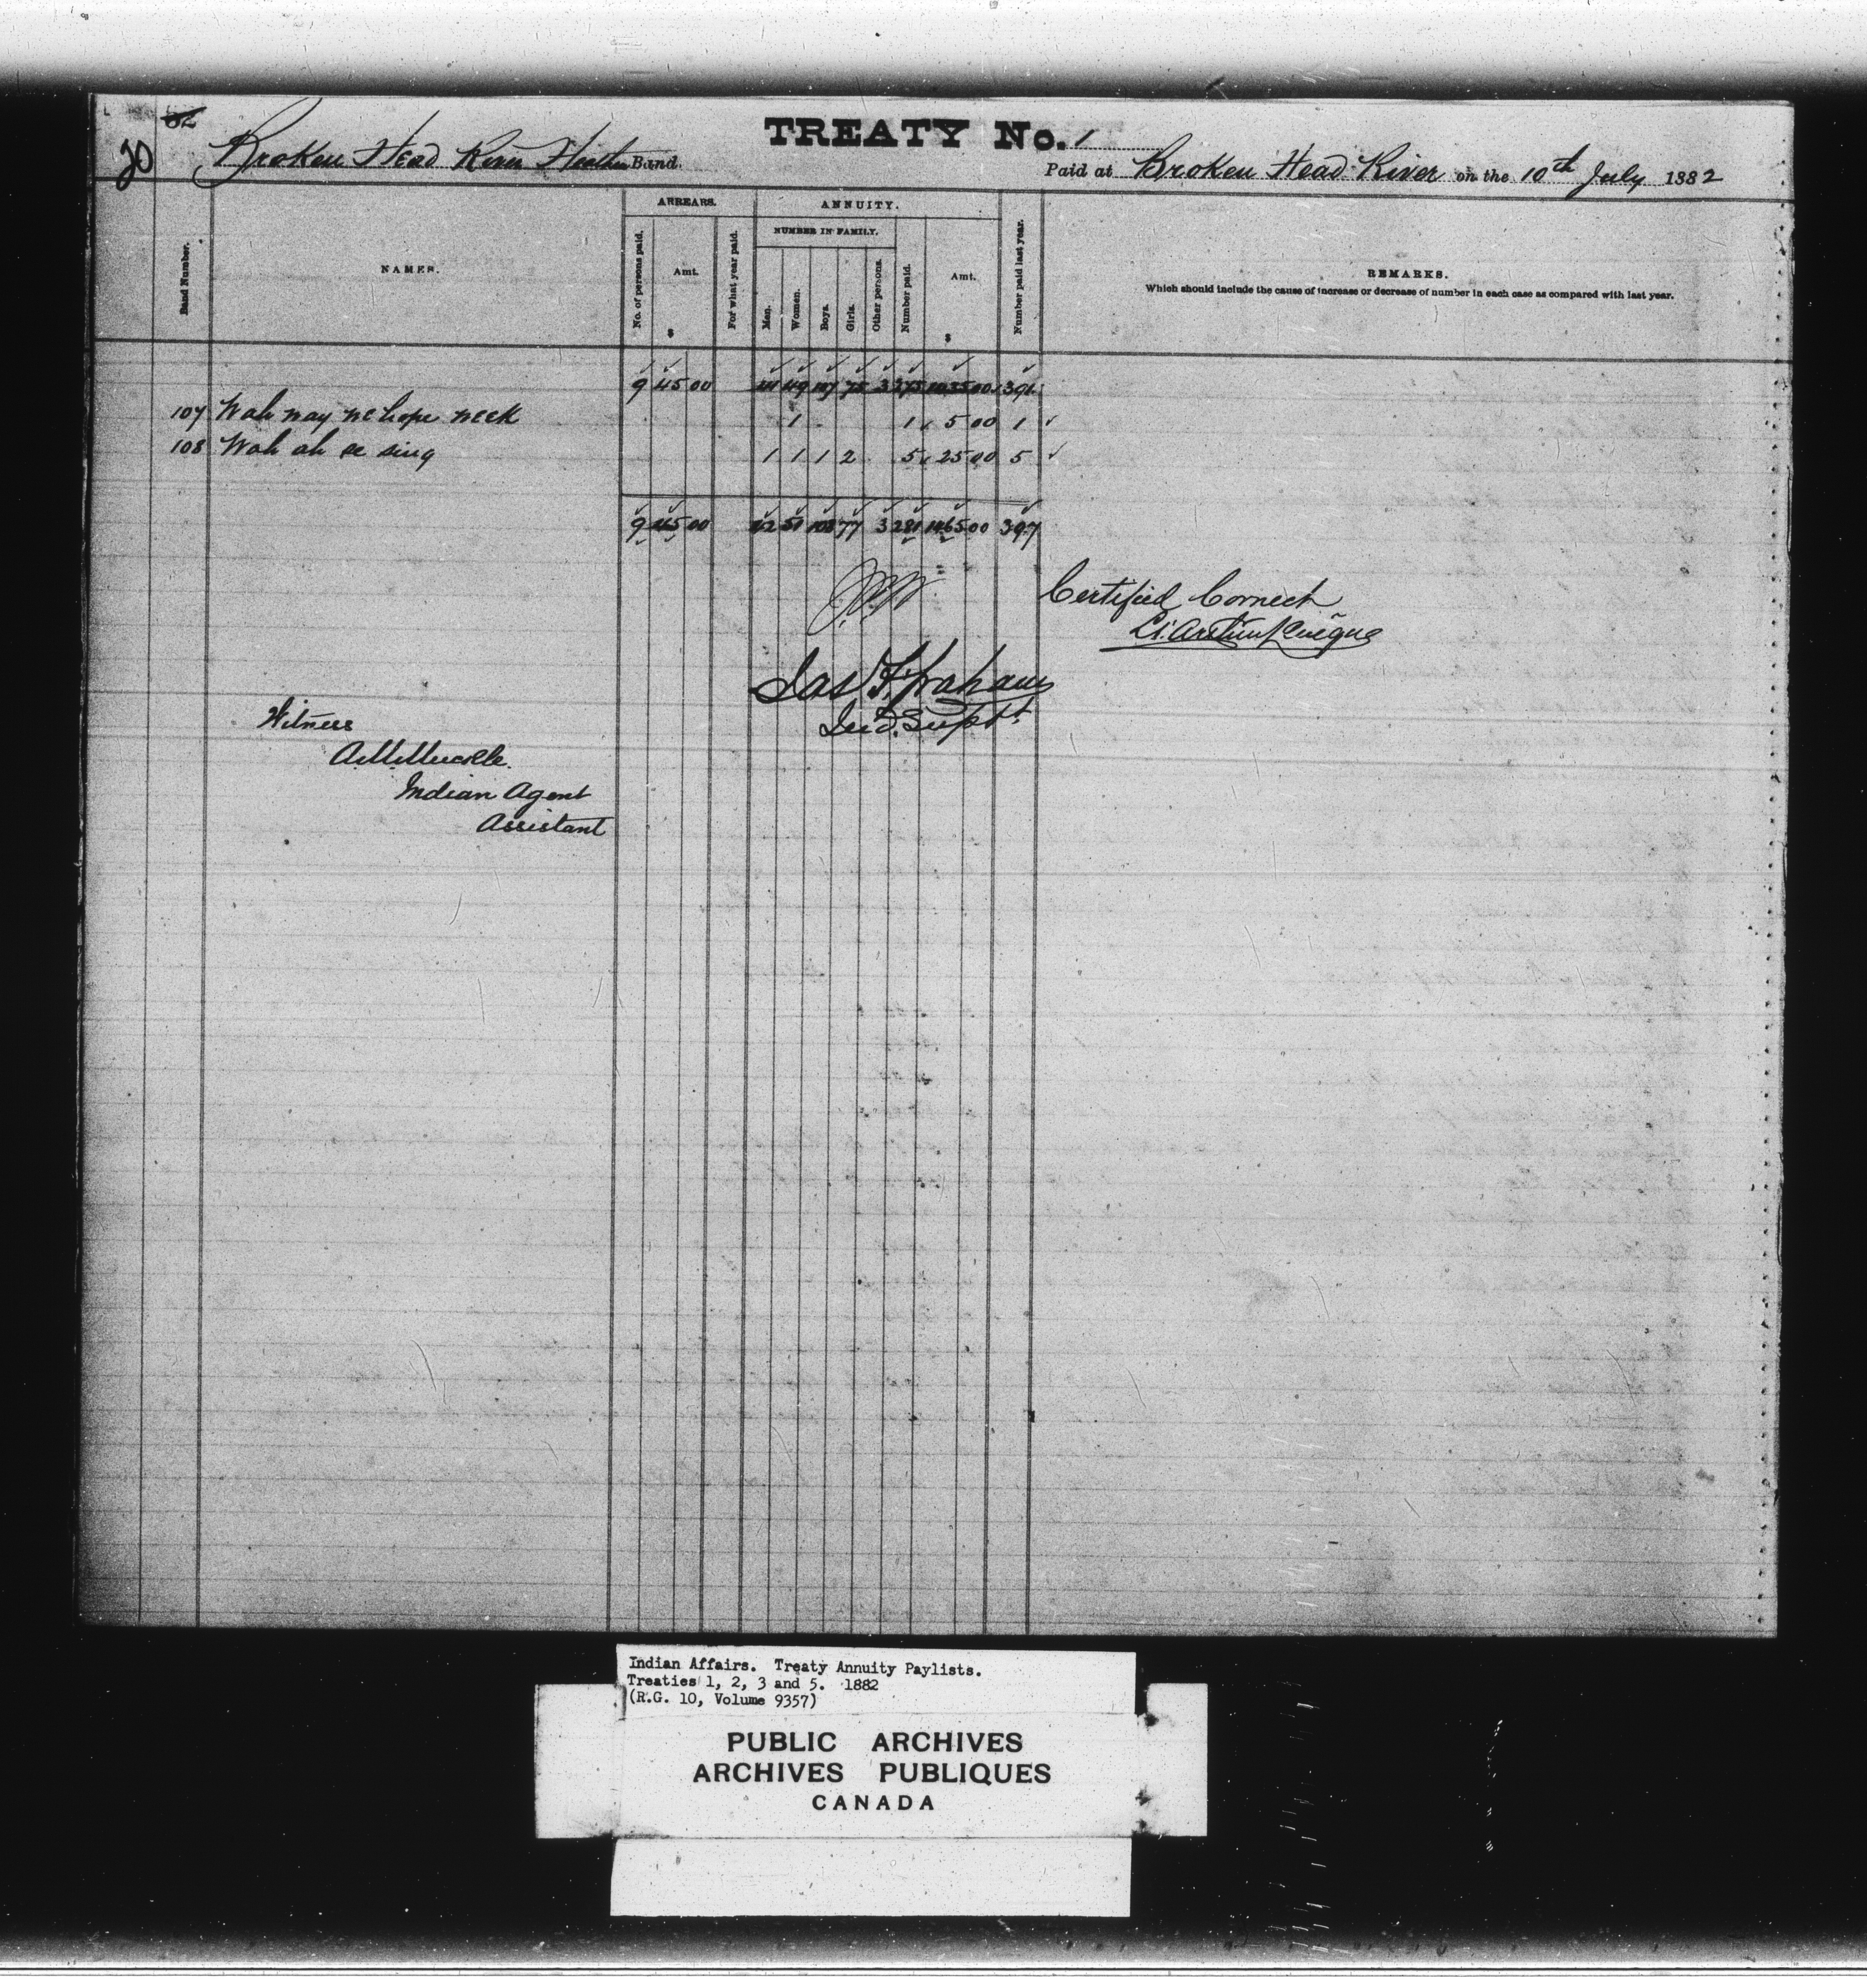 TREATY No. 1
20
Broken Head River Band
Paid at Broken Head River on the 10th July 1882
Band Number.
NAMES.
ARREARS.
No. of persons paid.
Amt.
$
For what year paid.
ANNUITY.
NUMBER IN FAMILY.
Men.
Women.
Boys.
Girls.
Other persons.
Number paid.
Amt.
$
Number paid last year.
REMARKS.
Which should include the cause of increase or decrease of number in each case as compared with last year.
9 45 00 49 107 75 3 275 391
107 Wah way ne hope neek 1 1 5 00 1
108 Wah ah se sing 1 1 1 2 5 25 00 5
9 45 00 108 77 3 281 1465 00 397
Certified Correct
Jas F. Graham
Ind. Supt.
Witness
Indian Agent
Assistant
Indian Affairs. Treaty Annuity Paylists.
Treaties 1, 2, 3 and 5. 1882
(R.G. 10, Volume 9357)
PUBLIC ARCHIVES
ARCHIVES PUBLIQUES
CANADA